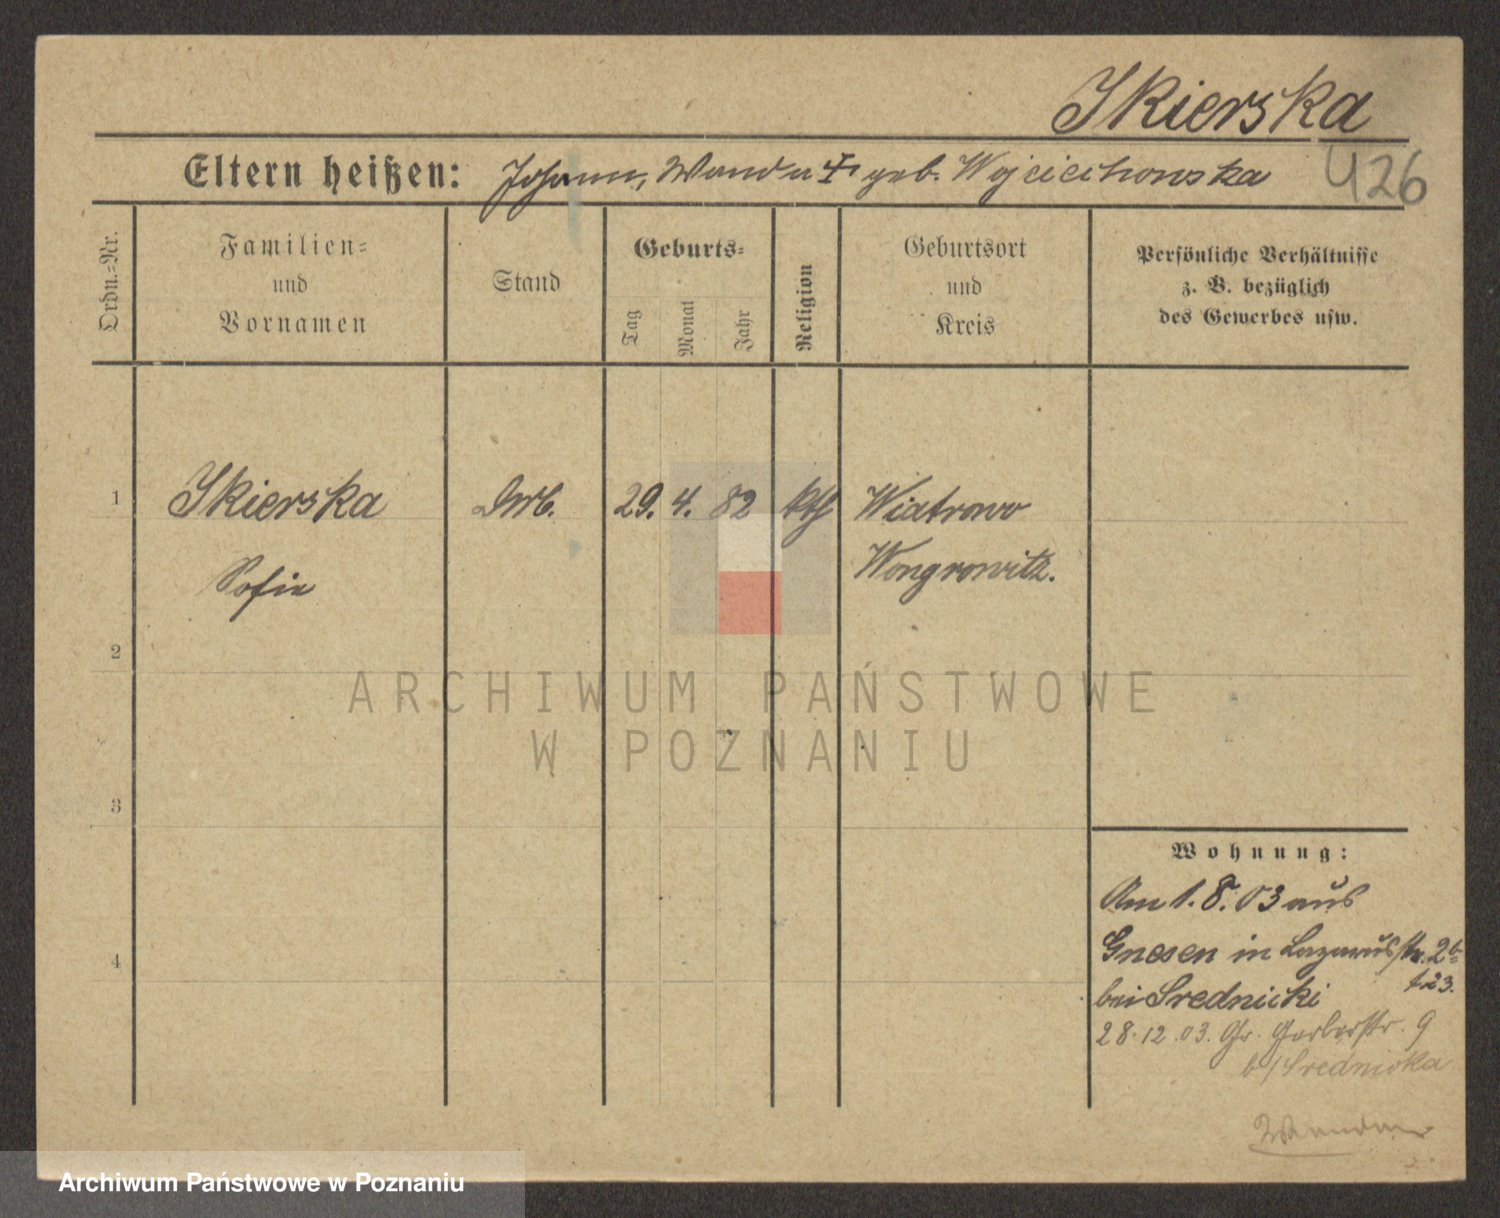 Skierska
Eltern heißen: Johann, Wanda geb. Wojciechowska
426
Ordn.-Nr.
Familien-
und
Vornamen
Stand
Geburts-
Tag
Monat
Jahr
Religion
Geburtsort
und
Kreis
Persönliche Verhältnisse
z. B. bezüglich
des Gewerbes usw.
1
Skierska 29. 4. 82 kth Wiatrowo
Sofie Wongrowitz.
2
ARCHIWUM PAŃSTWOWE
W POZNANIU
3
Wohnung:
Am 1. 8. 03 aus
Gnesen in Lazarusstr. 2b
bei Srednicki
4
28.12.03. Gr. Gerberstr. 9
b/Srednicka
Archiwum Państwowe w Poznaniu